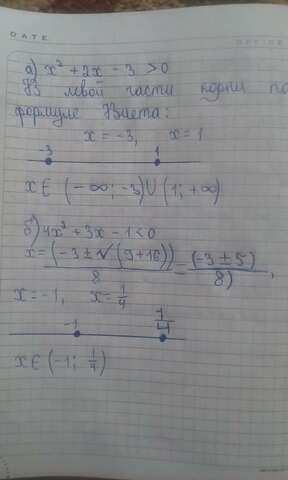 DATE
а) x² + 2x - 3 > 0
Из левой части корни по
формуле Виета:
x = -3, x = 1
-3 1
x ∈ (-∞; -3) ∪ (1; +∞)
б) 4x² + 3x - 1 < 0
x = (-3 ± √(9+16)) / 8 = (-3 ± 5) / 8),
x = -1, x = 1/4
-1 1/4
x ∈ (-1; 1/4)